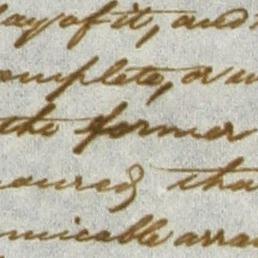 day of it, and
omplete, or u
the former
oured, tha
micable arra